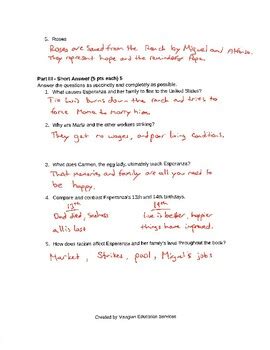 5. Roses
Roses are saved from the Ranch by Miguel and Alfonso.
They represent hope and the remember Papa.
Part III - Short Answer (5 pts each) 5
Answer the questions as succinctly and completely as possible.
1. What causes Esperanza and her family to flee to the United States?
Tio Luis burns down the ranch and tries to
force Mama to marry him.
2. Why are Marta and the other workers striking?
They get no wages, and poor living conditions.
3. What does Carmen, the egg lady, ultimately teach Esperanza?
That memories and family are all you need to
be happy.
4. Compare and contrast Esperanza's 13th and 14th birthdays.
13th 14th
Dad died, sadness live is better, happier
all is lost things have improved.
5. How does racism affect Esperanza and her family's lives throughout the book?
Market, Strikes, pool, Miguel's jobs
Created by Vaughn Education Services